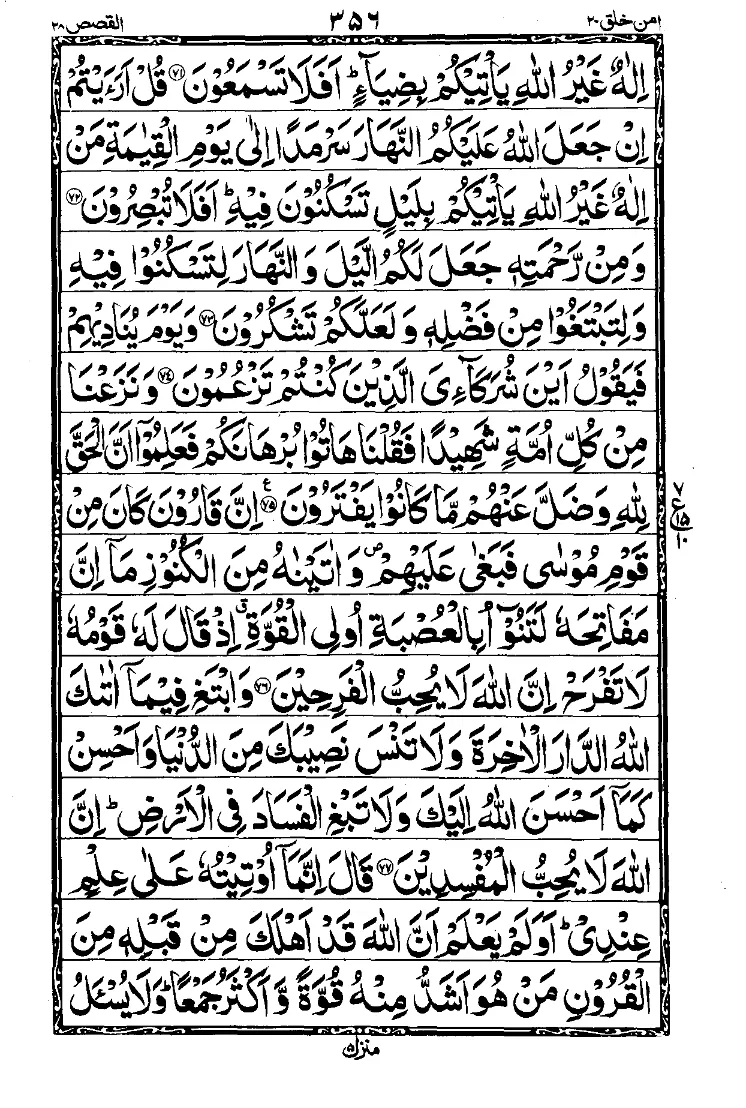 امن خلق ٢٠ ٣٥٦ القصص ٢٨
اِلٰهٌ غَيْرُ اللّٰهِ يَاْتِيْكُمْ بِضِيَآءٍ ؕ اَفَلَا تَسْمَعُوْنَ ﴿٧١﴾ قُلْ اَرَءَيْتُمْ
اِنْ جَعَلَ اللّٰهُ عَلَيْكُمُ النَّهَارَ سَرْمَدًا اِلٰى يَوْمِ الْقِيٰمَةِ مَنْ
اِلٰهٌ غَيْرُ اللّٰهِ يَاْتِيْكُمْ بِلَيْلٍ تَسْكُنُوْنَ فِيْهِ ؕ اَفَلَا تُبْصِرُوْنَ ﴿٧٢﴾
وَمِنْ رَّحْمَتِهٖ جَعَلَ لَكُمُ الَّيْلَ وَالنَّهَارَ لِتَسْكُنُوْا فِيْهِ
وَلِتَبْتَغُوْا مِنْ فَضْلِهٖ وَلَعَلَّكُمْ تَشْكُرُوْنَ ﴿٧٣﴾ وَيَوْمَ يُنَادِيْهِمْ
فَيَقُوْلُ اَيْنَ شُرَكَآءِيَ الَّذِيْنَ كُنْتُمْ تَزْعُمُوْنَ ﴿٧٤﴾ وَنَزَعْنَا
مِنْ كُلِّ اُمَّةٍ شَهِيْدًا فَقُلْنَا هَاتُوْا بُرْهَانَكُمْ فَعَلِمُوْٓا اَنَّ الْحَقَّ
لِلّٰهِ وَضَلَّ عَنْهُمْ مَّا كَانُوْا يَفْتَرُوْنَ ﴿٧٥﴾ ع اِنَّ قَارُوْنَ كَانَ مِنْ
٧ ع ١٥ ١٠
قَوْمِ مُوْسٰى فَبَغٰى عَلَيْهِمْ ۪ وَاٰتَيْنٰهُ مِنَ الْكُنُوْزِ مَآ اِنَّ
مَفَاتِحَهٗ لَتَنُوْٓاُ بِالْعُصْبَةِ اُولِى الْقُوَّةِ ۗ اِذْ قَالَ لَهٗ قَوْمُهٗ
لَا تَفْرَحْ اِنَّ اللّٰهَ لَا يُحِبُّ الْفَرِحِيْنَ ﴿٧٦﴾ وَابْتَغِ فِيْمَآ اٰتٰىكَ
اللّٰهُ الدَّارَ الْاٰخِرَةَ وَلَا تَنْسَ نَصِيْبَكَ مِنَ الدُّنْيَا وَاَحْسِنْ
كَمَآ اَحْسَنَ اللّٰهُ اِلَيْكَ وَلَا تَبْغِ الْفَسَادَ فِى الْاَرْضِ ؕ اِنَّ
اللّٰهَ لَا يُحِبُّ الْمُفْسِدِيْنَ ﴿٧٧﴾ قَالَ اِنَّمَآ اُوْتِيْتُهٗ عَلٰى عِلْمٍ
عِنْدِيْ ؕ اَوَلَمْ يَعْلَمْ اَنَّ اللّٰهَ قَدْ اَهْلَكَ مِنْ قَبْلِهٖ مِنَ
الْقُرُوْنِ مَنْ هُوَ اَشَدُّ مِنْهُ قُوَّةً وَّاَكْثَرُ جَمْعًا ؕ وَلَا يُسْـَٔلُ
منزل ٥